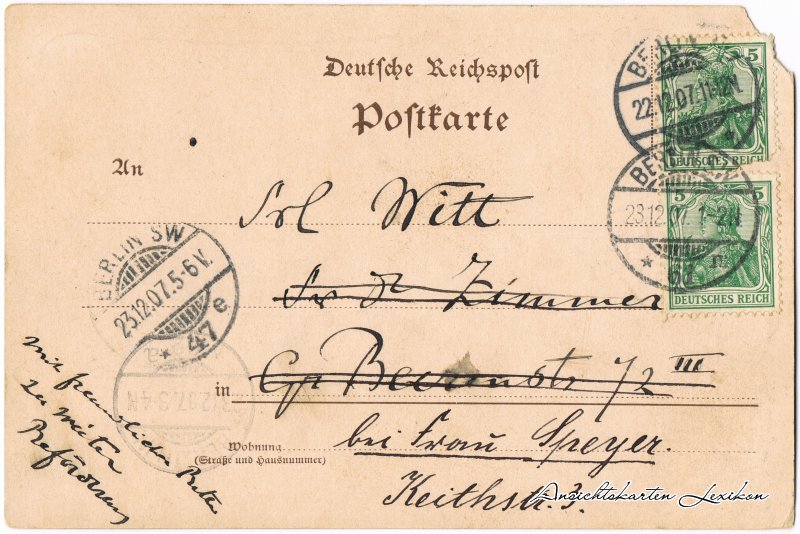 Deutsche Reichspost
Postkarte
An
Frl Witt
Zimmer
in Gr Beerenstr 72 III
bei Frau Speyer.
Keithstr. 3.
Wohnung
(Straße und Hausnummer)
mit freundlicher Bitte
zu weiter
Beförderung
BERLIN SW
23.12.07.5-6V.
* 47 e
22.12.07.11-12N.
5
DEUTSCHES REICH
23.12.07. 1-2N
5
DEUTSCHES REICH
Ansichtskarten Lexikon